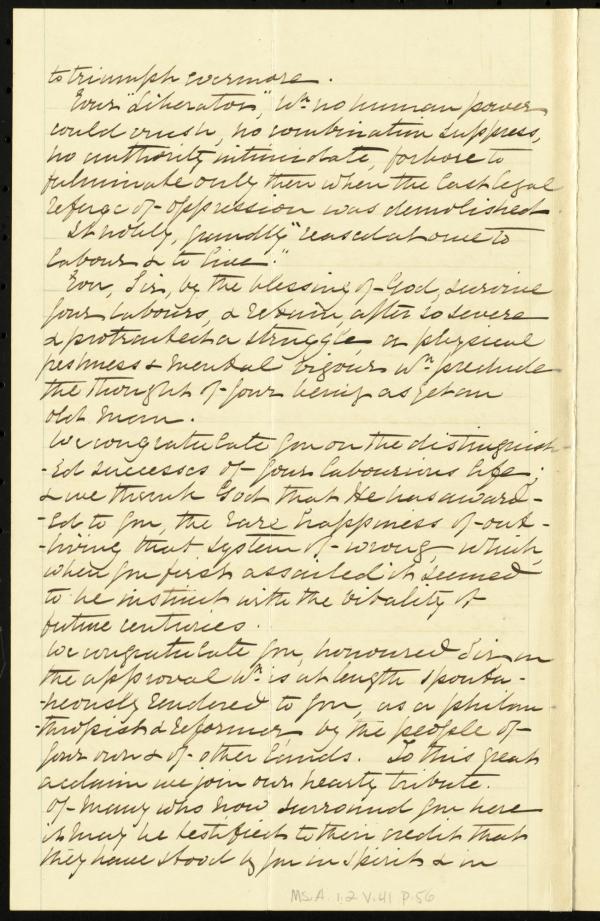 to triumph evermore.
Your "Liberator", wh. no human power
could crush, no combination suppress,
no authority intimidate, forbore to
fulminate only then when the last legal
refuge of oppression was demolished
It nobly, grandly "ceased at once to
labour & to live."
You, Sir, by the blessing of God, survive
your labours, & retain after so severe
& protracted a struggle, a physical
freshness & mental vigour wh. preclude
the thought of your being as yet an
old man.
We congratulate you on the distinguish-
-ed successes of your labourious life;
& we thank God that He has award-
-ed to you, the rare happiness of out-
-living that system of wrong, which,
when you first assailed it seemed
to be instinct with the vitality of
future centuries.
We congratulate you, honoured Sir, on
the approval wh. is at length sponta-
-neously rendered to you, as a philan-
-thropist & reformer, by the people of
your own & of other lands. To this great
acclaim we join our hearty tribute.
Of many who now surround you here
it may be testified to their credit that
they have stood by you in spirit & in
Ms.A.1.2 V.41 P.56